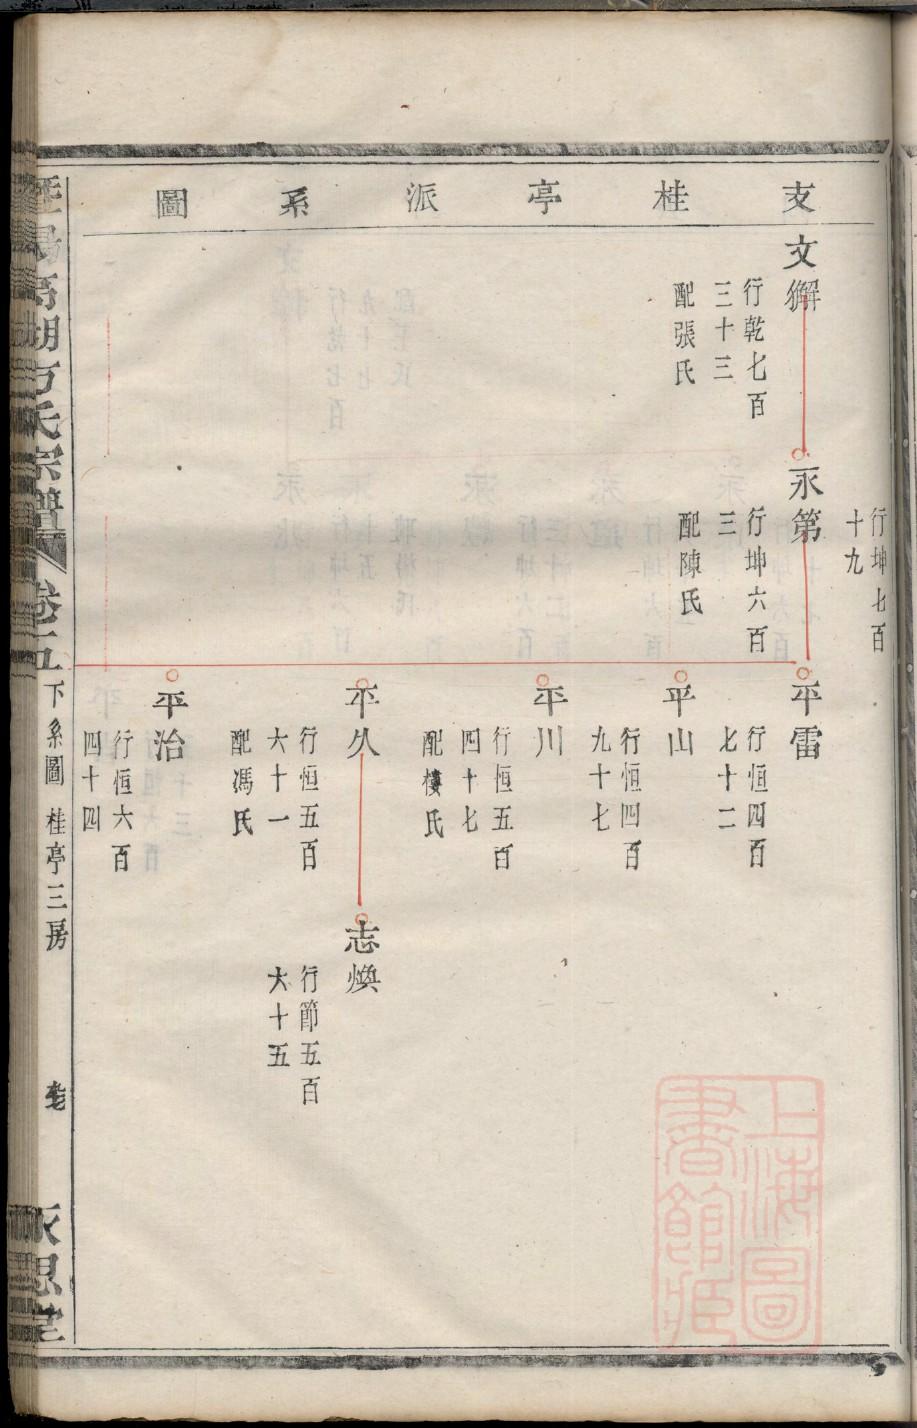 支桂亭派系圖
行坤七百
十九
文獬
行乾七百
三十三
配張氏
永第
行坤六百
三
配陳氏
平雷
行恒四百
七十二
平山
行恒四百
九十七
平川
行恒五百
四十七
配樓氏
平久
行恒五百
六十一
配馮氏
志煥
行節五百
六十五
平治
行恒六百
四十四
方氏宗譜
卷十五
下系圖 桂亭三房
上海圖
書館藏